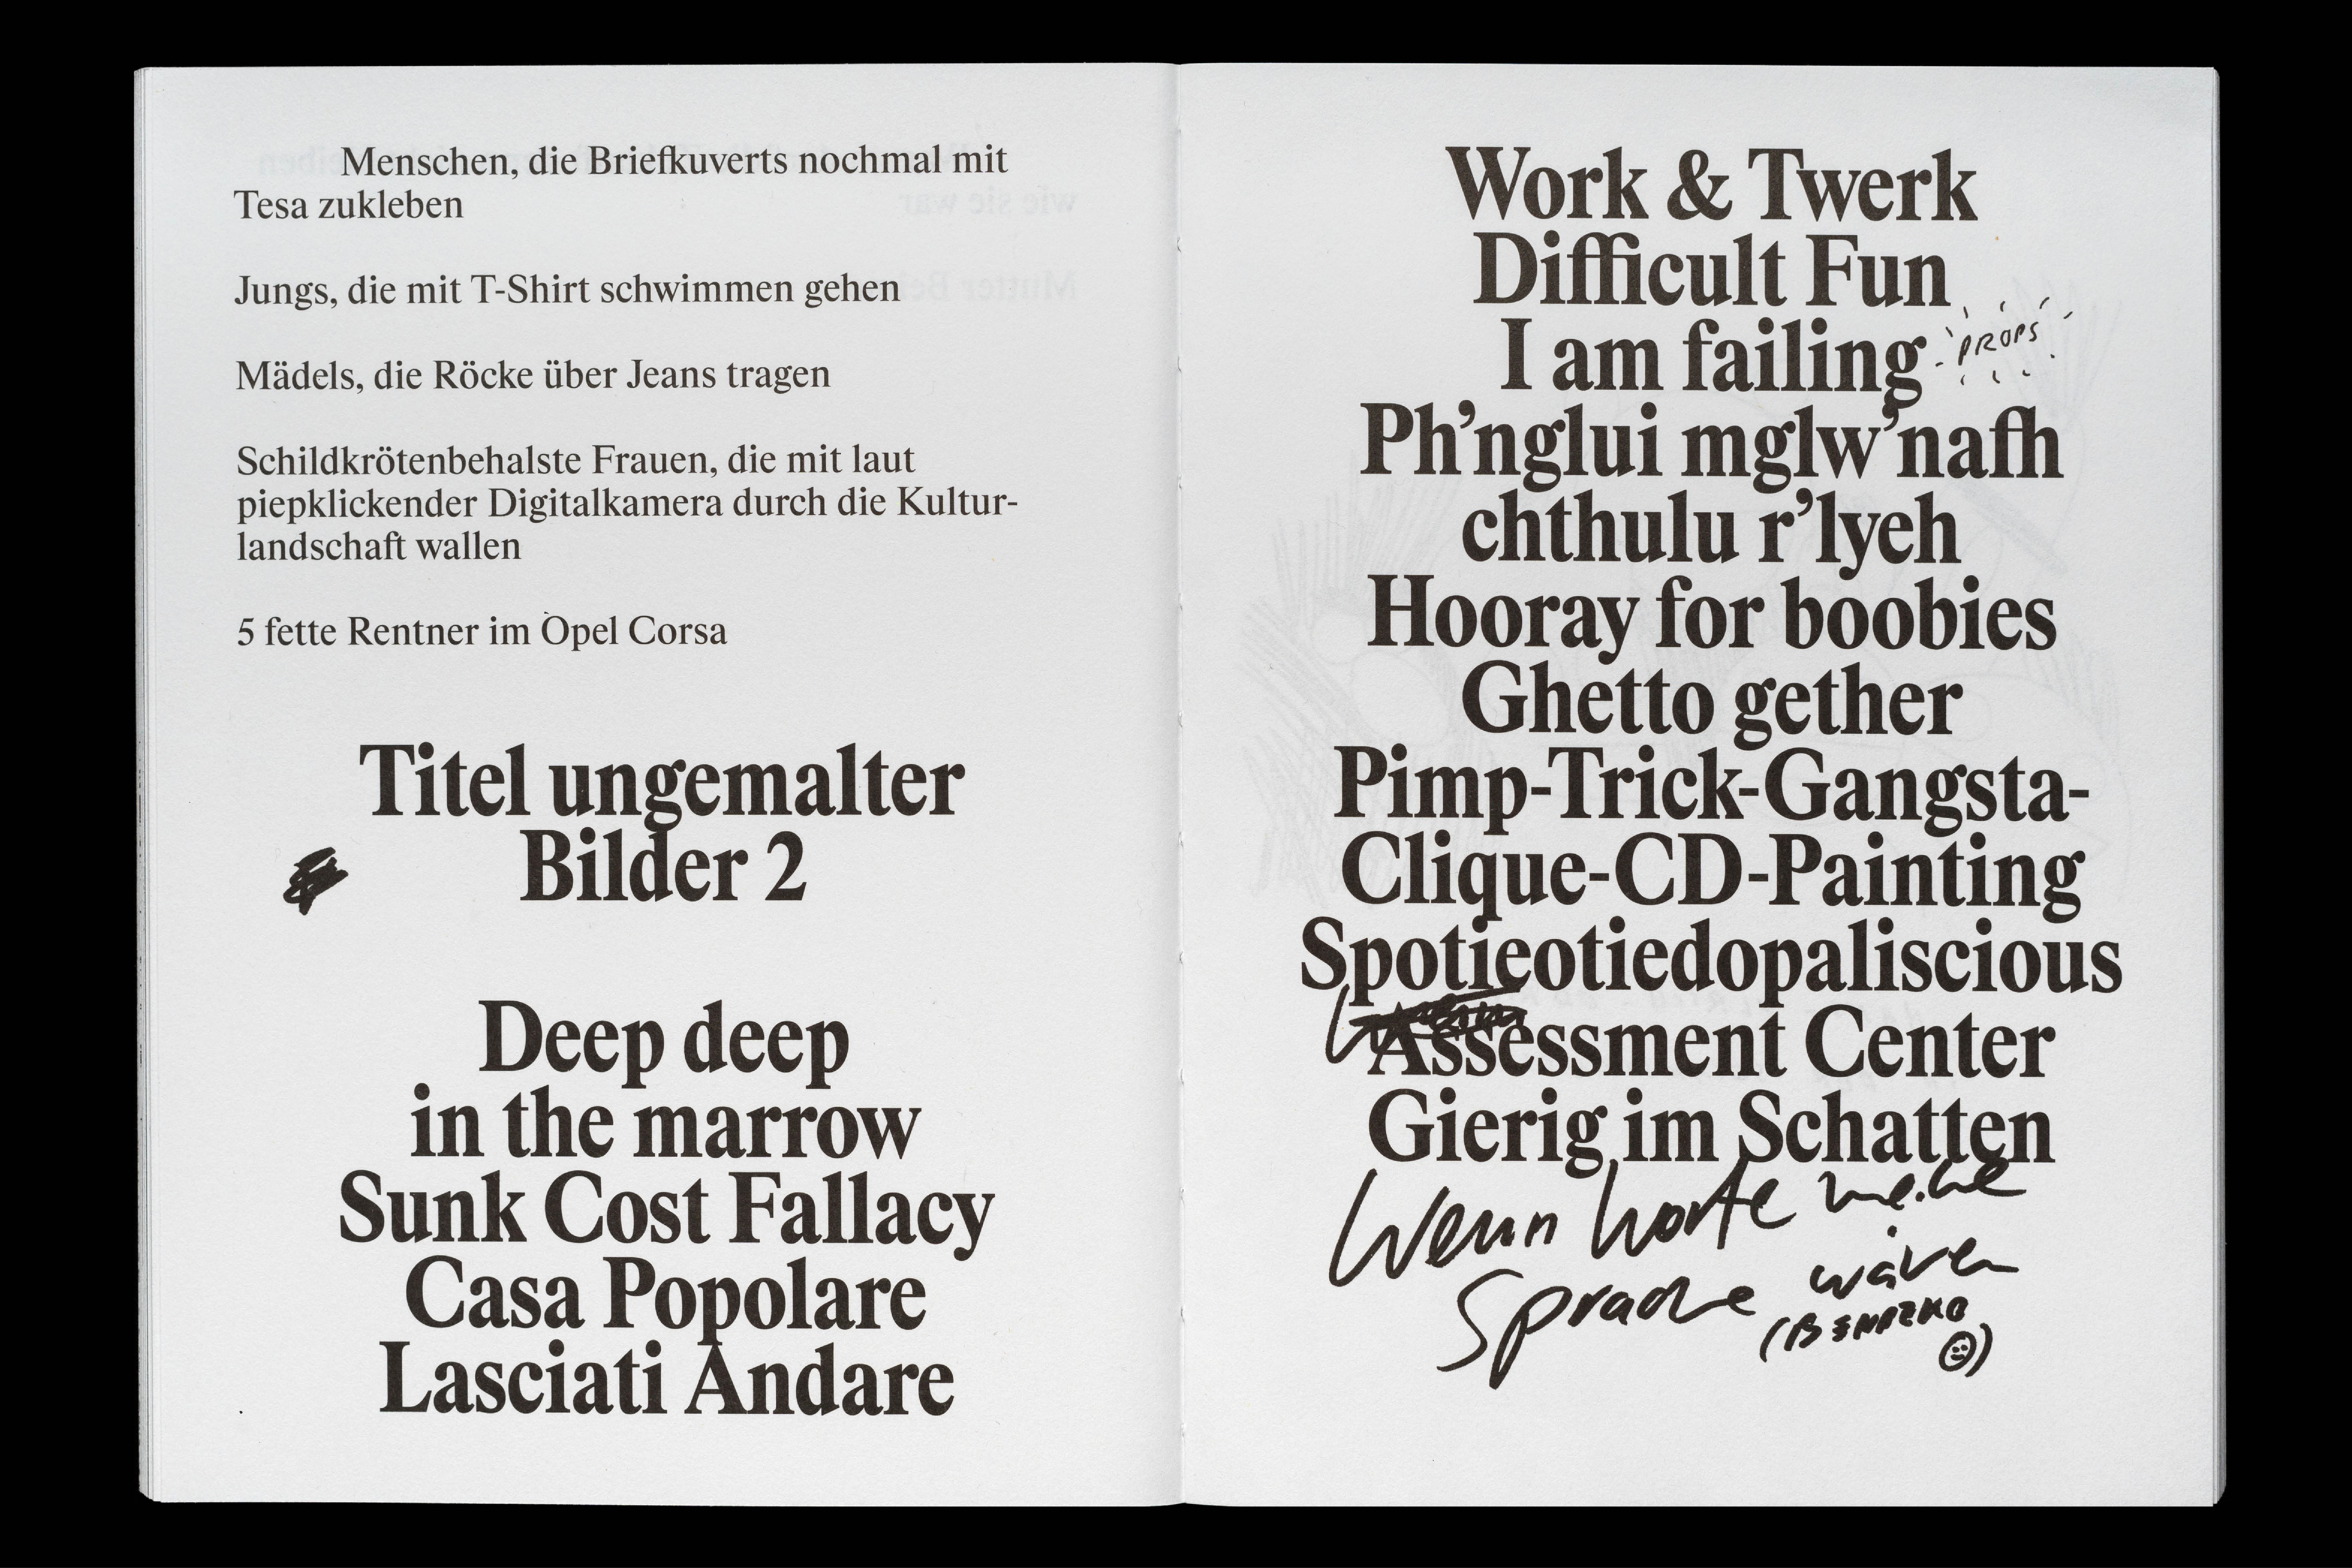 Menschen, die Briefkuverts nochmal mit
Tesa zukleben
Jungs, die mit T-Shirt schwimmen gehen
Mädels, die Röcke über Jeans tragen
Schildkrötenbehalste Frauen, die mit laut
piepklickender Digitalkamera durch die Kultur-
landschaft wallen
5 fette Rentner im Opel Corsa
Titel ungemalter
Bilder 2
Deep deep
in the marrow
Sunk Cost Fallacy
Casa Popolare
Lasciati Andare
Work & Twerk
Difficult Fun
I am failing
PROPS
Ph’nglui mglw’nafh
chthulu r’lyeh
Hooray for boobies
Ghetto gether
Pimp-Trick-Gangsta-
Clique-CD-Painting
Spotieotiedopaliscious
Assessment Center
Gierig im Schatten
Wenn Worte meine
Sprache wären